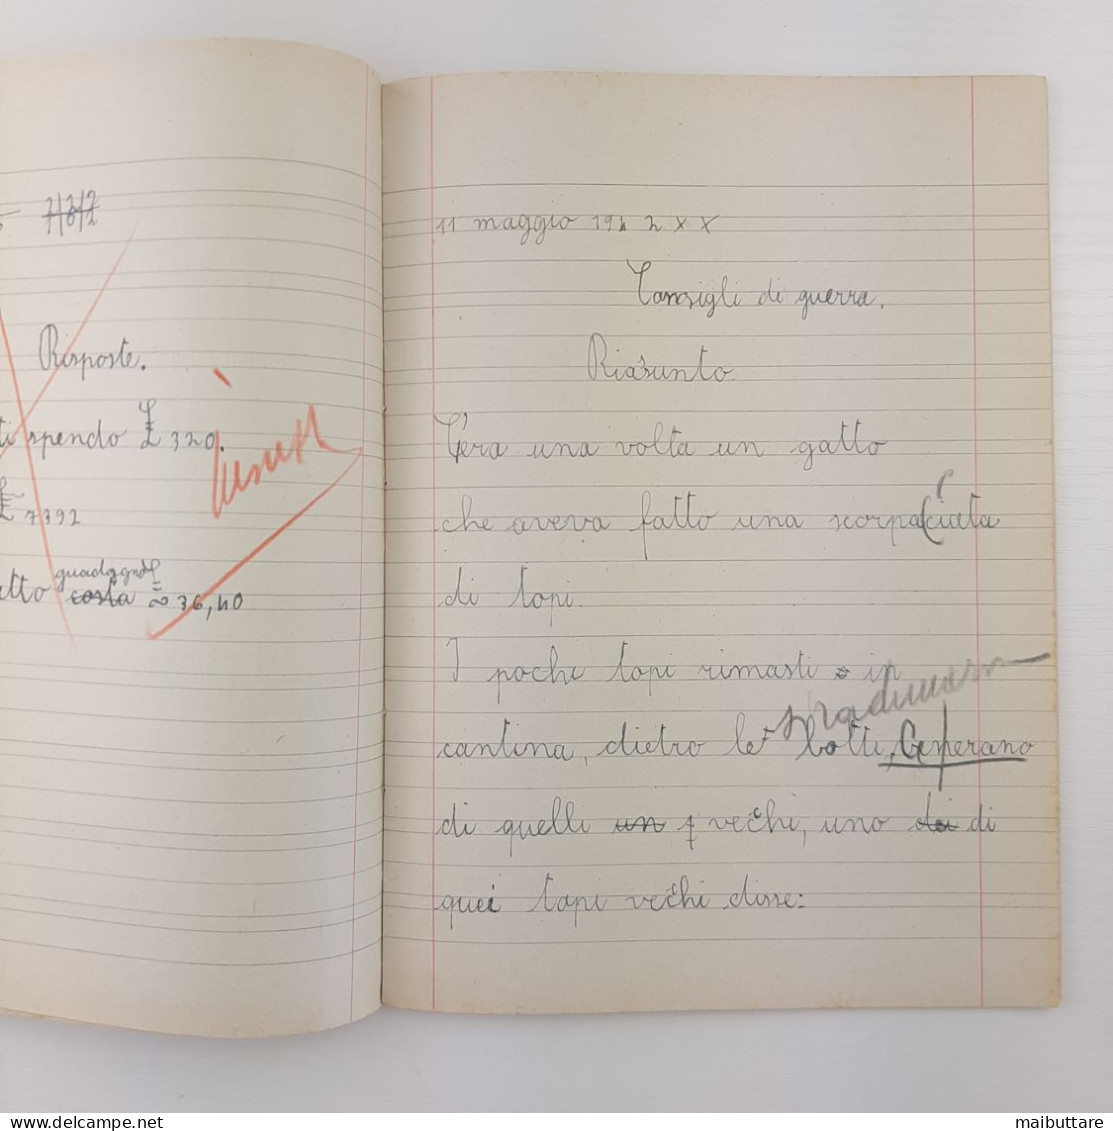 Risposte.
ti spendo £ 320.
£ 7392
guadagno
atto costa 36,40
11 maggio 1942 XX
Consigli di guerra.
Riassunto
C'era una volta un gatto
che aveva fatto una scorpacciata
di topi.
I pochi topi rimasti in
cantina, dietro le botti, C'erano
di quelli un vecchi, uno dei di
quei topi vecchi disse:
maibuttare